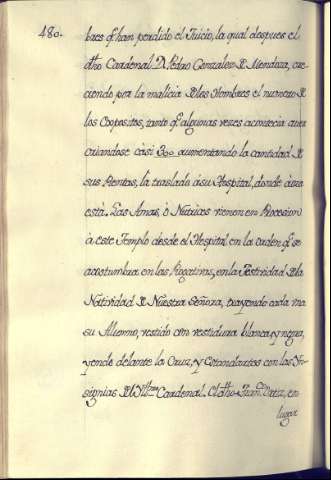 480.
bres q̃ han perdido el Juicio, la qual despues el
dho Cardenal D. Pedro Gonzalez de Mendoza, cre
ciendo por la malicia de los Hombres el numero de
los Expositos, tanto q̃ algunas vezes acontecia aver
criandose càsi 300 aumentando la cantidad de
sus Rentas, la trasladò à su Hospital, donde aora
està. Las Amas, ò Nutrices vienen en Procesion
à este Templo desde el Hospital en la orden q̃ se
acostumbra en las Rogativas, en la Festividad de la
Natividad de Nuestra Señora, trayendo cada una
su Alumno, vestido con vestidura blanca, y negra,
yendo delante la Cruz, y Estandartes con las Yn
signias del Yll.mo Cardenal. El dho Fran.co Ortiz, en
lugar